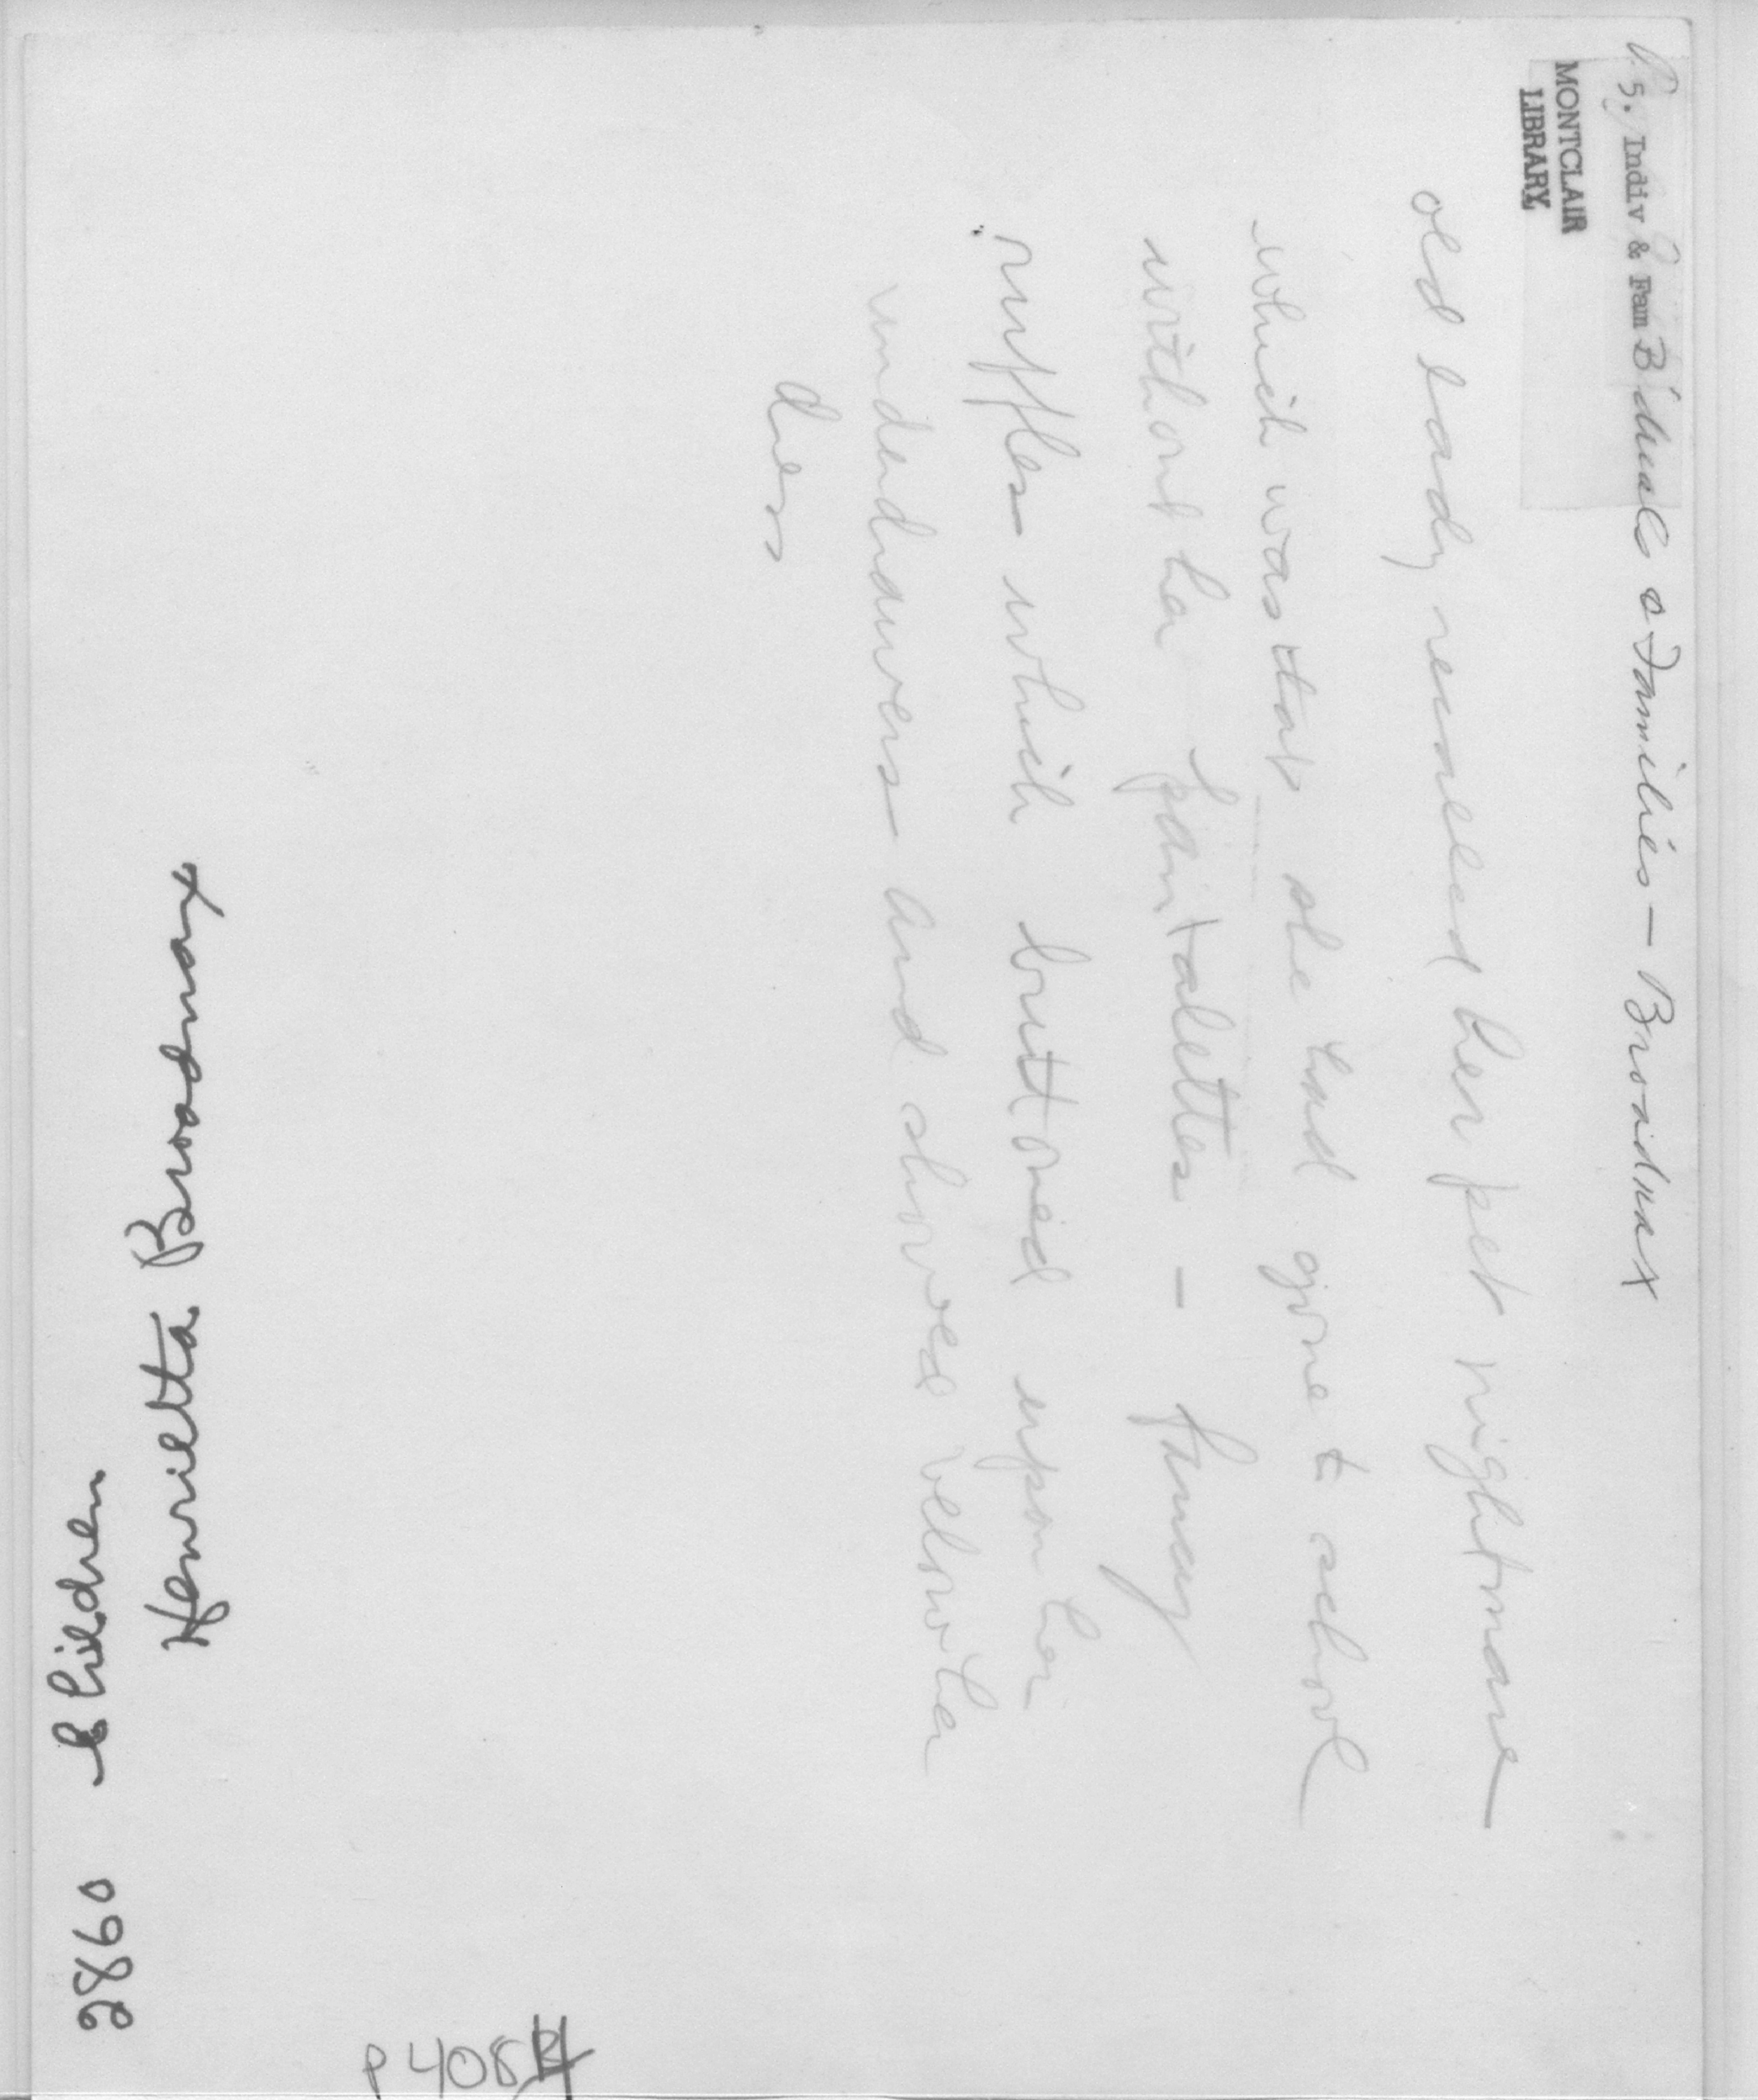 Ps. Indiv & Fam Biduals & Families — Broadnax
MONTCLAIR
LIBRARY
old lady recalled her pet nightmare
which was that she had gone to school
without her pantalettes – fancy
ruffles which buttoned upon her
underdrawers and showed below her
dress
2860 Children
Henrietta Broadnax
P 408